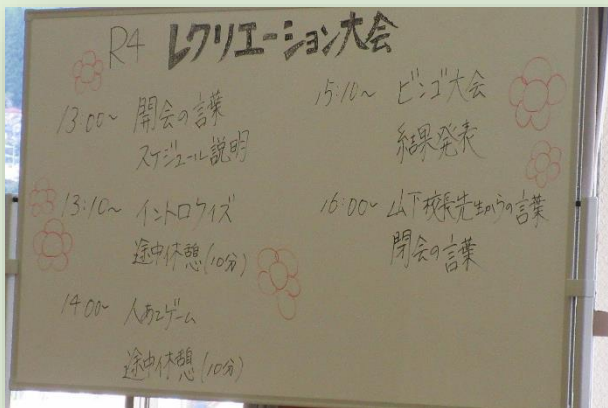 R4 レクリエーション大会
13:00～ 開会の言葉
スケジュール説明
13:10～ イントロクイズ
途中休憩(10分)
14:00～ 人あてゲーム
途中休憩(10分)
15:10～ ビンゴ大会
結果発表
16:00～ 山下校長先生からの言葉
閉会の言葉